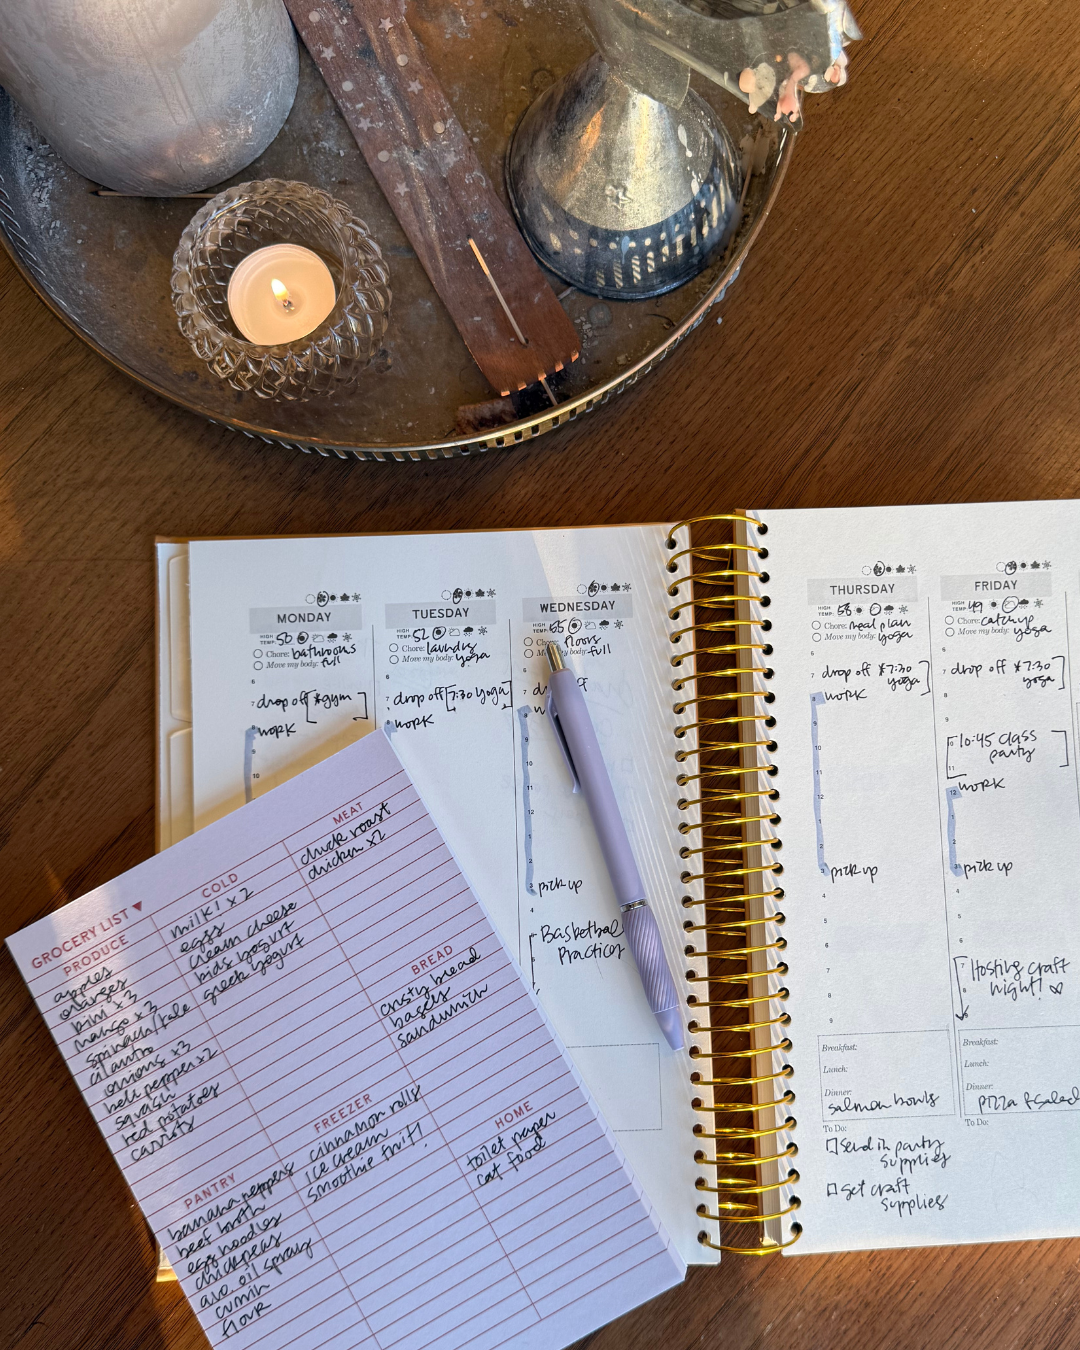 MONDAY
HIGH
TEMP: 50
Chore: bathrooms
Move my body: full
6
7 drop off [*gym]
8 work
9
10
TUESDAY
HIGH
TEMP: 52
Chore: laundry
Move my body: yoga
6
7 drop off [7:30 yoga]
8 work
WEDNESDAY
HIGH
TEMP: 55
Chore: floors
Move my body: full
6
7
8
9
10
11
12
1
2
3 pick up
4
Basketball
Practice
THURSDAY
HIGH
TEMP: 58
Chore: meal plan
Move my body: yoga
6
7 drop off *7:30
yoga]
8 work
9
10
11
12
1
2
3 pick up
4
5
6
7
8
9
Breakfast:
Lunch:
Dinner:
salmon bowls
To Do:
send in party
supplies
get craft
supplies
FRIDAY
HIGH
TEMP: 49
Chore: catch up
Move my body: yoga
6
7 drop off *7:30
yoga]
8
9
10 10:45 class
party
11
12 work
1
2
3 pick up
4
5
6
7 Hosting craft
night! ♡
8
Breakfast:
Lunch:
Dinner:
pizza & salad
To Do:
GROCERY LIST ▼
PRODUCE
apples
oranges
kiwi x3
mango x3
spinach/kale
cilantro
onions x3
bell pepper x2
squash
red potatoes
carrots
COLD
milk! x2
eggs
cream cheese
kids yogurt
greek yogurt
MEAT
chuck roast
chicken x2
BREAD
crusty bread
bagels
sandwich
PANTRY
banana peppers
beef broth
egg noodles
chickpeas
avo. oil spray
cumin
flour
FREEZER
cinnamon rolls
ice cream
smoothie fruit!
HOME
toilet paper
cat food